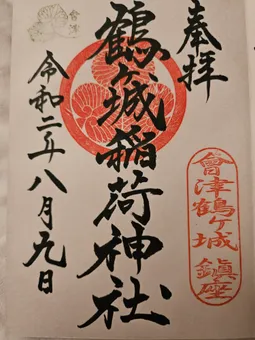 奉拝
鶴ヶ城稲荷神社
令和二年八月九日
會津鶴ヶ城 鎮座
會津